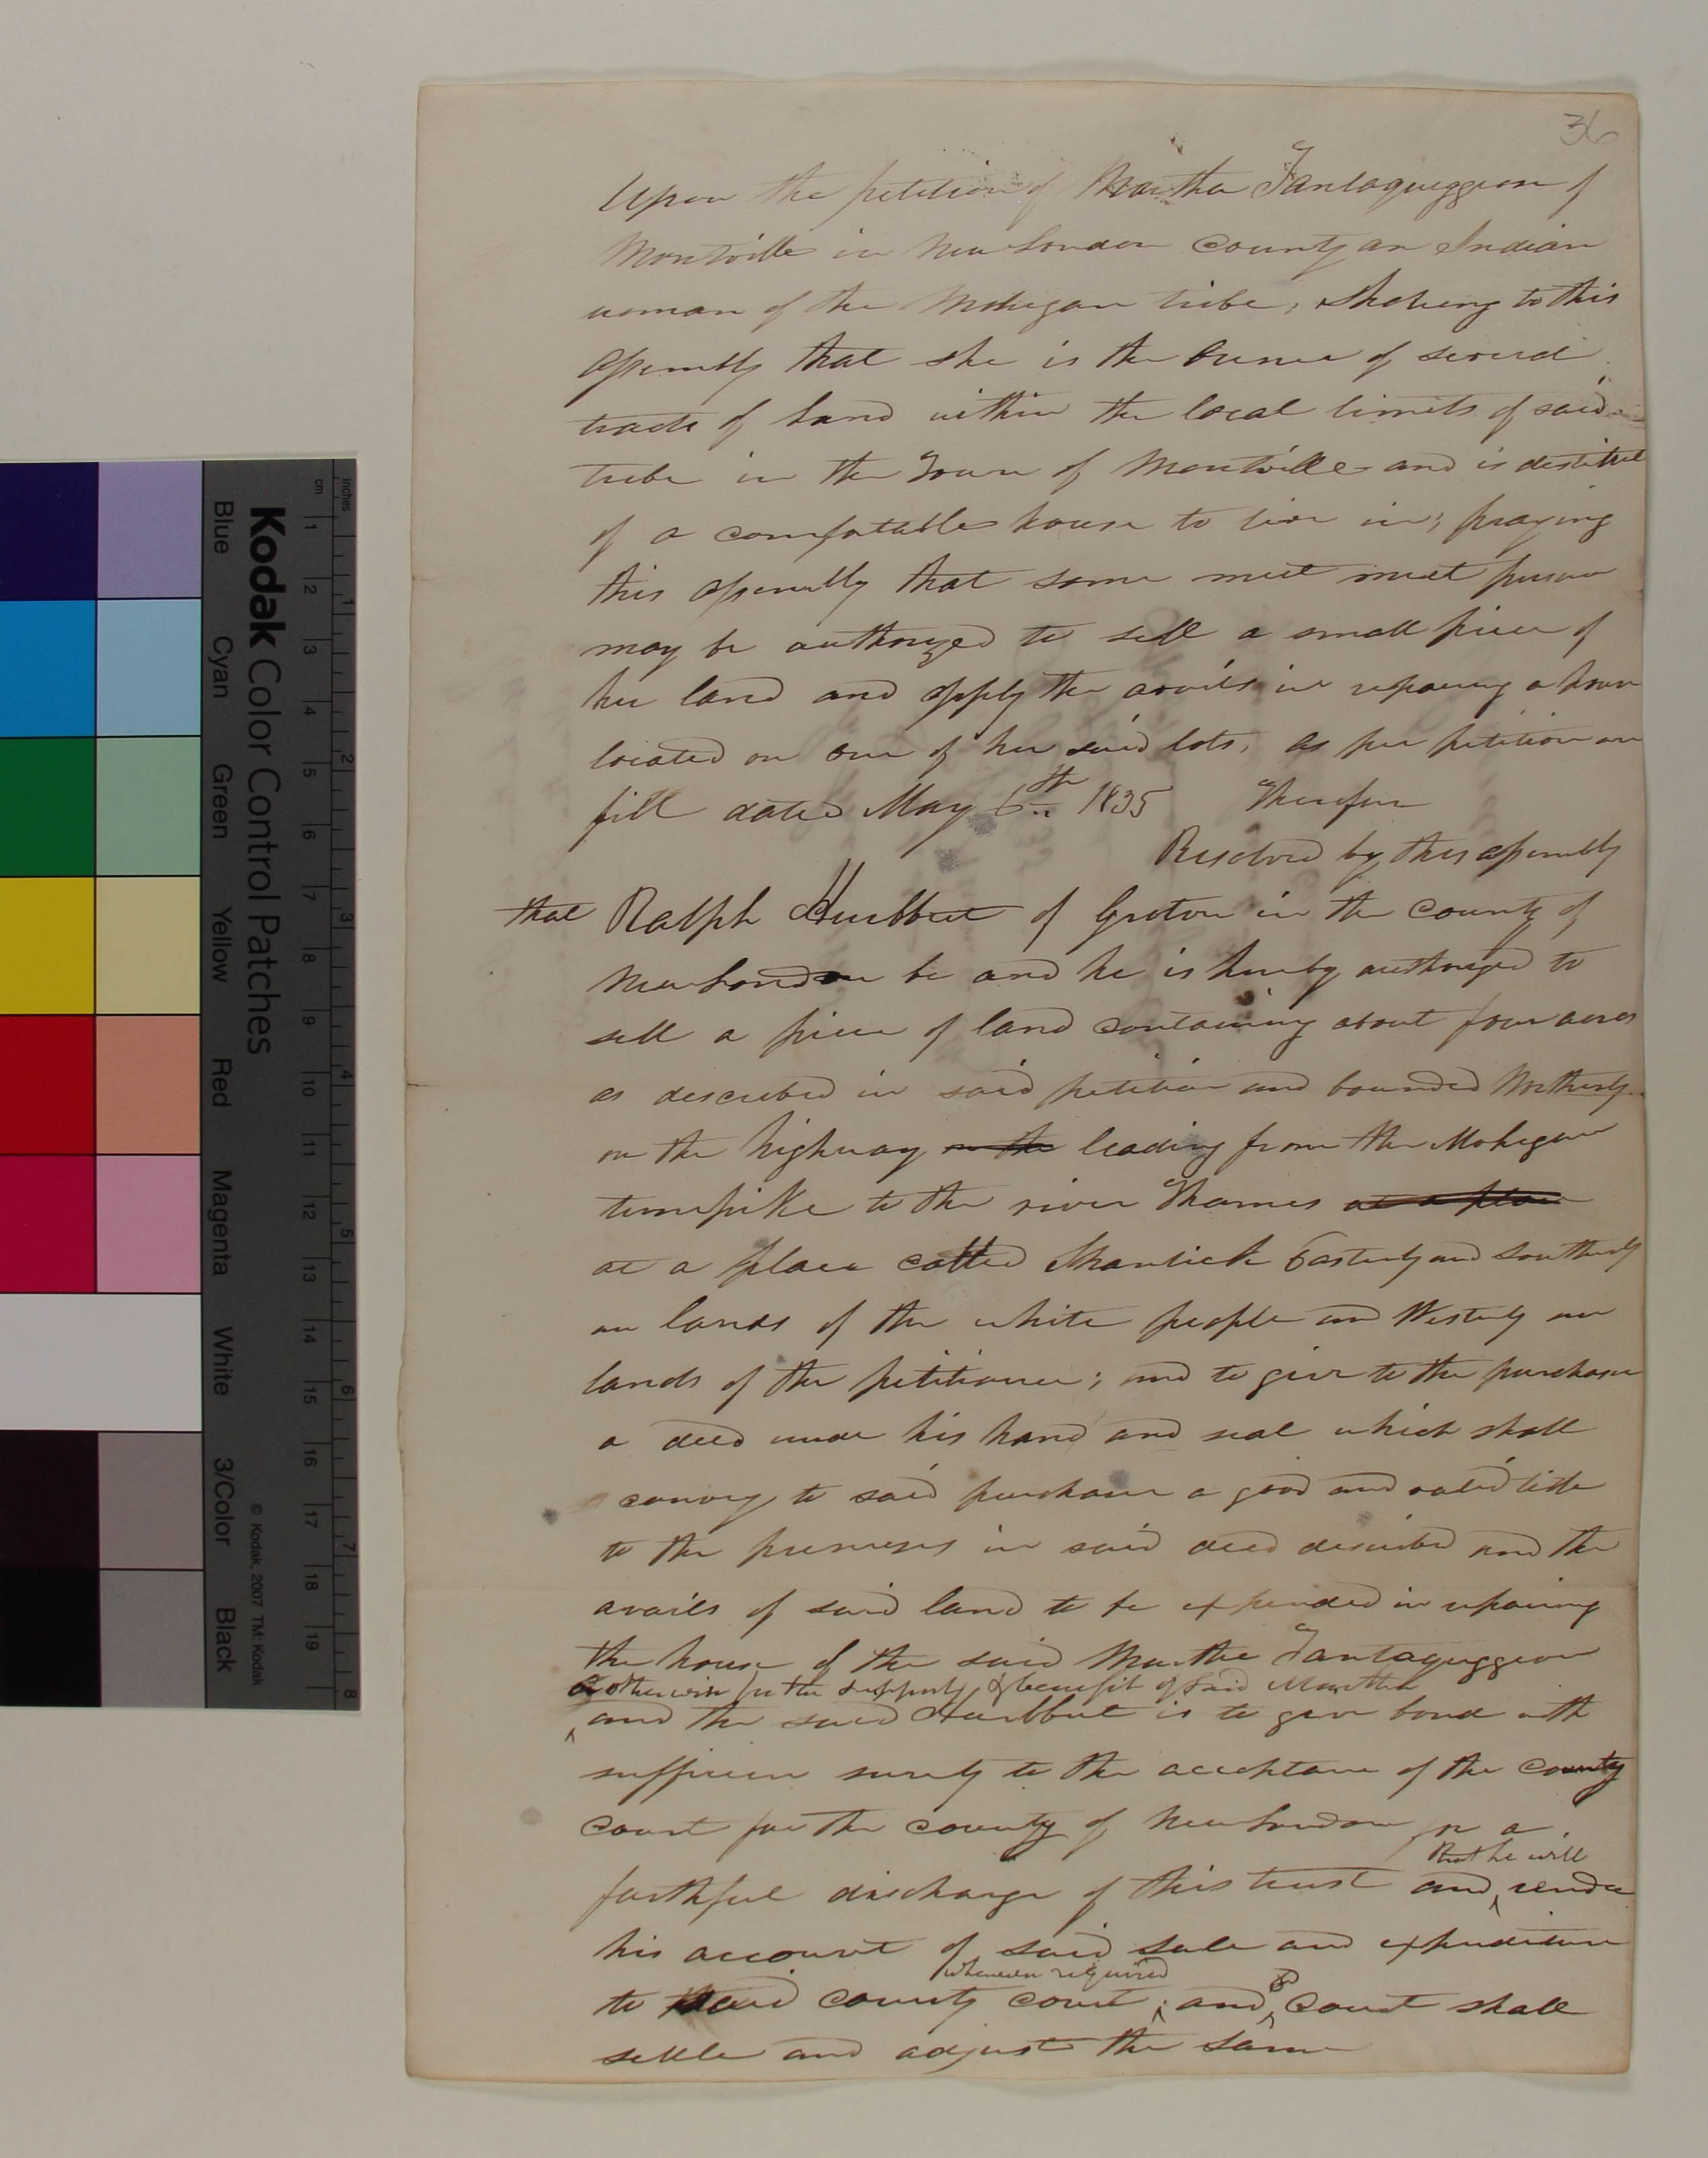 36
Upon the petition of Martha Tantaquiggeon of
Montville in New London County an Indian
woman of the Mohegan tribe, Shewing to this
Assembly that she is the owner of several
tracts of land within the local limits of said
tribe in the Town of Montville and is destitute
of a comfortable house to live in; praying
this Assembly that some meet person
may be authorized to sell a small piece of
her land and apply the avails in repairing a house
located on one of her said lots, as per petition on
file dated May 6th 1835 Therefore
Resolved by this assembly
that Ralph Hurlbut of Groton in the County of
New London be and he is hereby authorized to
sell a piece of land containing about four acres
as described in said petition and bounded Northerly
on the highway on the leading from the Mohegan
turnpike to the river Thames at a place
at a place called Shantick Easterly and Southerly
on lands of the white people and Westerly on
lands of the petitioner; and to give to the purchaser
a deed under his hand and seal which shall
convey to said purchaser a good and valid title
to the premises in said deed described and the
avails of said land to be expended in repairing
the house of the said Martha Tantaquiggeon
or otherwise for the support & benefit of said Martha
and the said Hurlbut is to give bond with
sufficien surety to the acceptance of the County
Court for the county of New London for a
that he will
faithful discharge of this trust and render
his account of said sale and expenditure
whenever required sd
to said County Court; and Court shall
settle and adjust the same
inches
cm
1 2 3 4 5 6 7 8 9 10 11 12 13 14 15 16 17 18 19
1 2 3 4 5 6 7 8
Kodak Color Control Patches
© Kodak, 2007 TM: Kodak
Blue Cyan Green Yellow Red Magenta White 3/Color Black